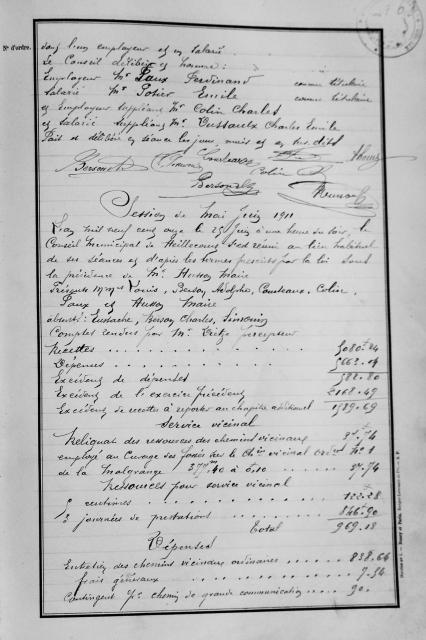 N° d'ordre.
sont lieu employeur et un salarié
Le Conseil délibère et nomme :
Employeur Mr Paux Ferdinand comme titulaire
Salarié Mr Potier Emile comme titulaire
et Employeur suppléant Mr Colin Charles
et Salarié suppléant Mr Dussaulx Charles Emile
Fait et délibéré en séance les jour, mois et an sus dits
Colin
Session de Mai Juin 1911
L'an mil neuf cent onze le 25 Juin à une heure du soir, le
Conseil Municipal de Heillecourt s'est réuni au lieu habituel
de ses séances et d'après les termes prescrits par la loi sous
la présidence de Mr Husson Maire
Présents M mrs Louis, Berson Adolphe, Couteaux, Colin,
Paux et Husson Maire
absents : Eustache, Berson Charles, Simonin
Comptes rendus par Mr percepteur
Recettes 5080.24
Dépenses 5663.04
Excédent de dépenses 582.80
Excédent de l'exercice précédent 2168.49
Excédent de recettes à reporter au chapitre additionnel 1989.69
Service vicinal
Reliquat des ressources des chemins vicinaux 37.74
employé au curage des fossés du Ch. vicinal ord. N° 1
de la Malgrange 377m40 à 0,10 37.74
Ressources pour service vicinal
5 centimes 122.28
3 journées de prestations 846.90
Total 969.18
Dépenses
Entretien des chemins vicinaux ordinaires 838.64
frais généraux 9.54
Contingent pr chemin de grande communication 90.